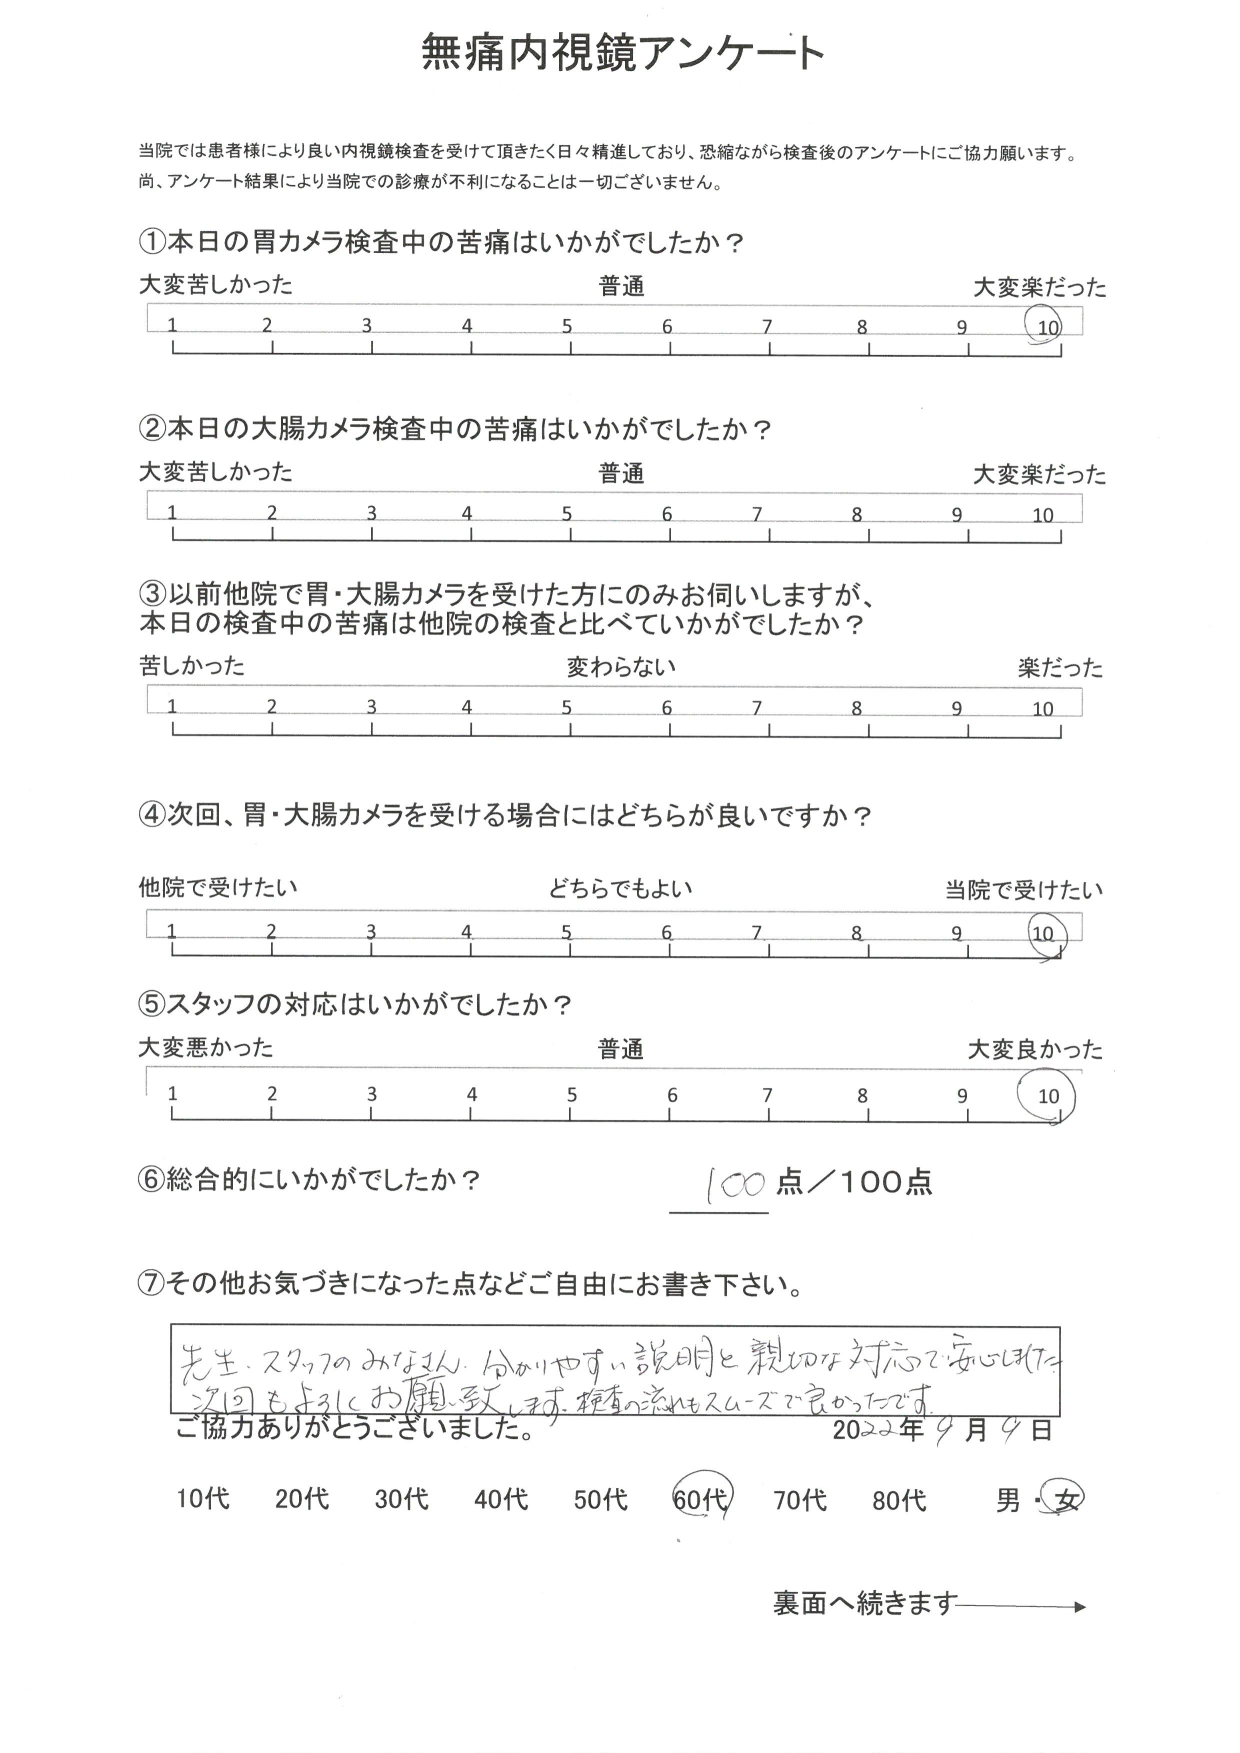 無痛内視鏡アンケート
当院では患者様により良い内視鏡検査を受けて頂きたく日々精進しており、恐縮ながら検査後のアンケートにご協力願います。
尚、アンケート結果により当院での診療が不利になることは一切ございません。
①本日の胃カメラ検査中の苦痛はいかがでしたか？
大変苦しかった 普通 大変楽だった
1 2 3 4 5 6 7 8 9 10
②本日の大腸カメラ検査中の苦痛はいかがでしたか？
大変苦しかった 普通 大変楽だった
1 2 3 4 5 6 7 8 9 10
③以前他院で胃・大腸カメラを受けた方にのみお伺いしますが、
本日の検査中の苦痛は他院の検査と比べていかがでしたか？
苦しかった 変わらない 楽だった
1 2 3 4 5 6 7 8 9 10
④次回、胃・大腸カメラを受ける場合にはどちらが良いですか？
他院で受けたい どちらでもよい 当院で受けたい
1 2 3 4 5 6 7 8 9 10
⑤スタッフの対応はいかがでしたか？
大変悪かった 普通 大変良かった
1 2 3 4 5 6 7 8 9 10
⑥総合的にいかがでしたか？ 100点／100点
⑦その他お気づきになった点などご自由にお書き下さい。
先生、スタッフのみなさん、分かりやすい説明と親切な対応で安心しました
次回もよろしくお願い致します。検査の流れもスムーズで良かったです。
ご協力ありがとうございました。 2022年9月9日
10代 20代 30代 40代 50代 60代 70代 80代 男・女
裏面へ続きます